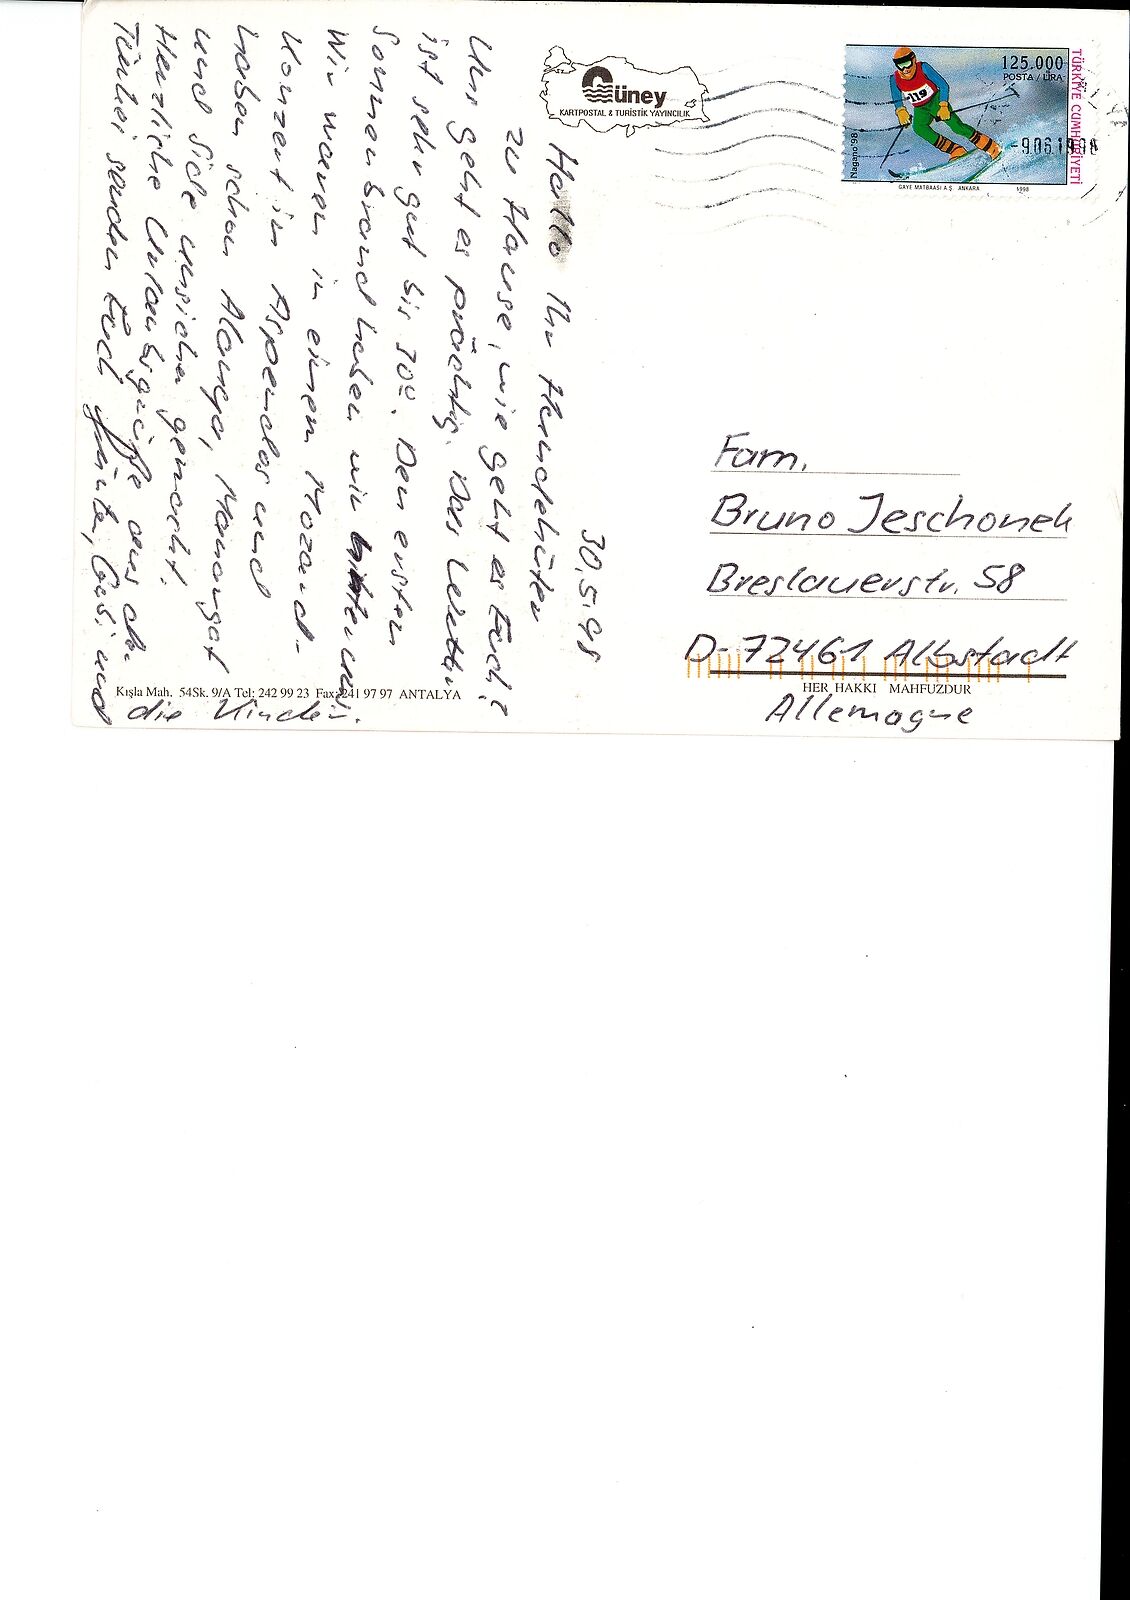 30.5.98
Hallo Ihr Hundehüter
zu Hause, wie geht es Euch?
Uns geht es prächtig. Das Wetter
ist sehr gut bis 30°. Den ersten
Sonnenbrand haben wir hinter uns.
Wir waren in einem Mozart-
Konzert in Aspendos und
haben schon Alanya, Manavgat
und Side unsicher gemacht.
Herzliche Urlaubsgrüße aus der
Türkei senden Euch Günter, Gabi und
die Kinder.
Güney
KARTPOSTAL & TURİSTİK YAYINCILIK
125.000
POSTA / LİRA
TÜRKİYE CUMHURİYETİ
119
Nagano'98
-9.06.19
GAYE MATBAASI A.Ş. ANKARA 1998
Fam.
Bruno Jeschonek
Breslauerstr. 58
D-72461 Albstadt
Allemagne
Kışla Mah. 54Sk. 9/A Tel: 242 99 23 Fax: 241 97 97 ANTALYA
HER HAKKI MAHFUZDUR